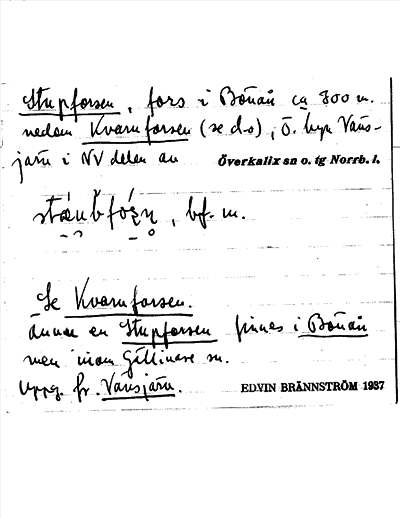 Stupforsen, fors i Bönån ca 800 m.
nedom Kvarnforsen (se d.o), Ö. byn Väns-
järn i NV delen av Överkalix sn o. tg Norrb. l.
, bf. m.
Se Kvarnforsen.
Ännu en Stupforsen finnes i Bönån
men inom Gällivare sn.
Uppg. fr. Vänsjärn.
EDVIN BRÄNNSTRÖM 1937